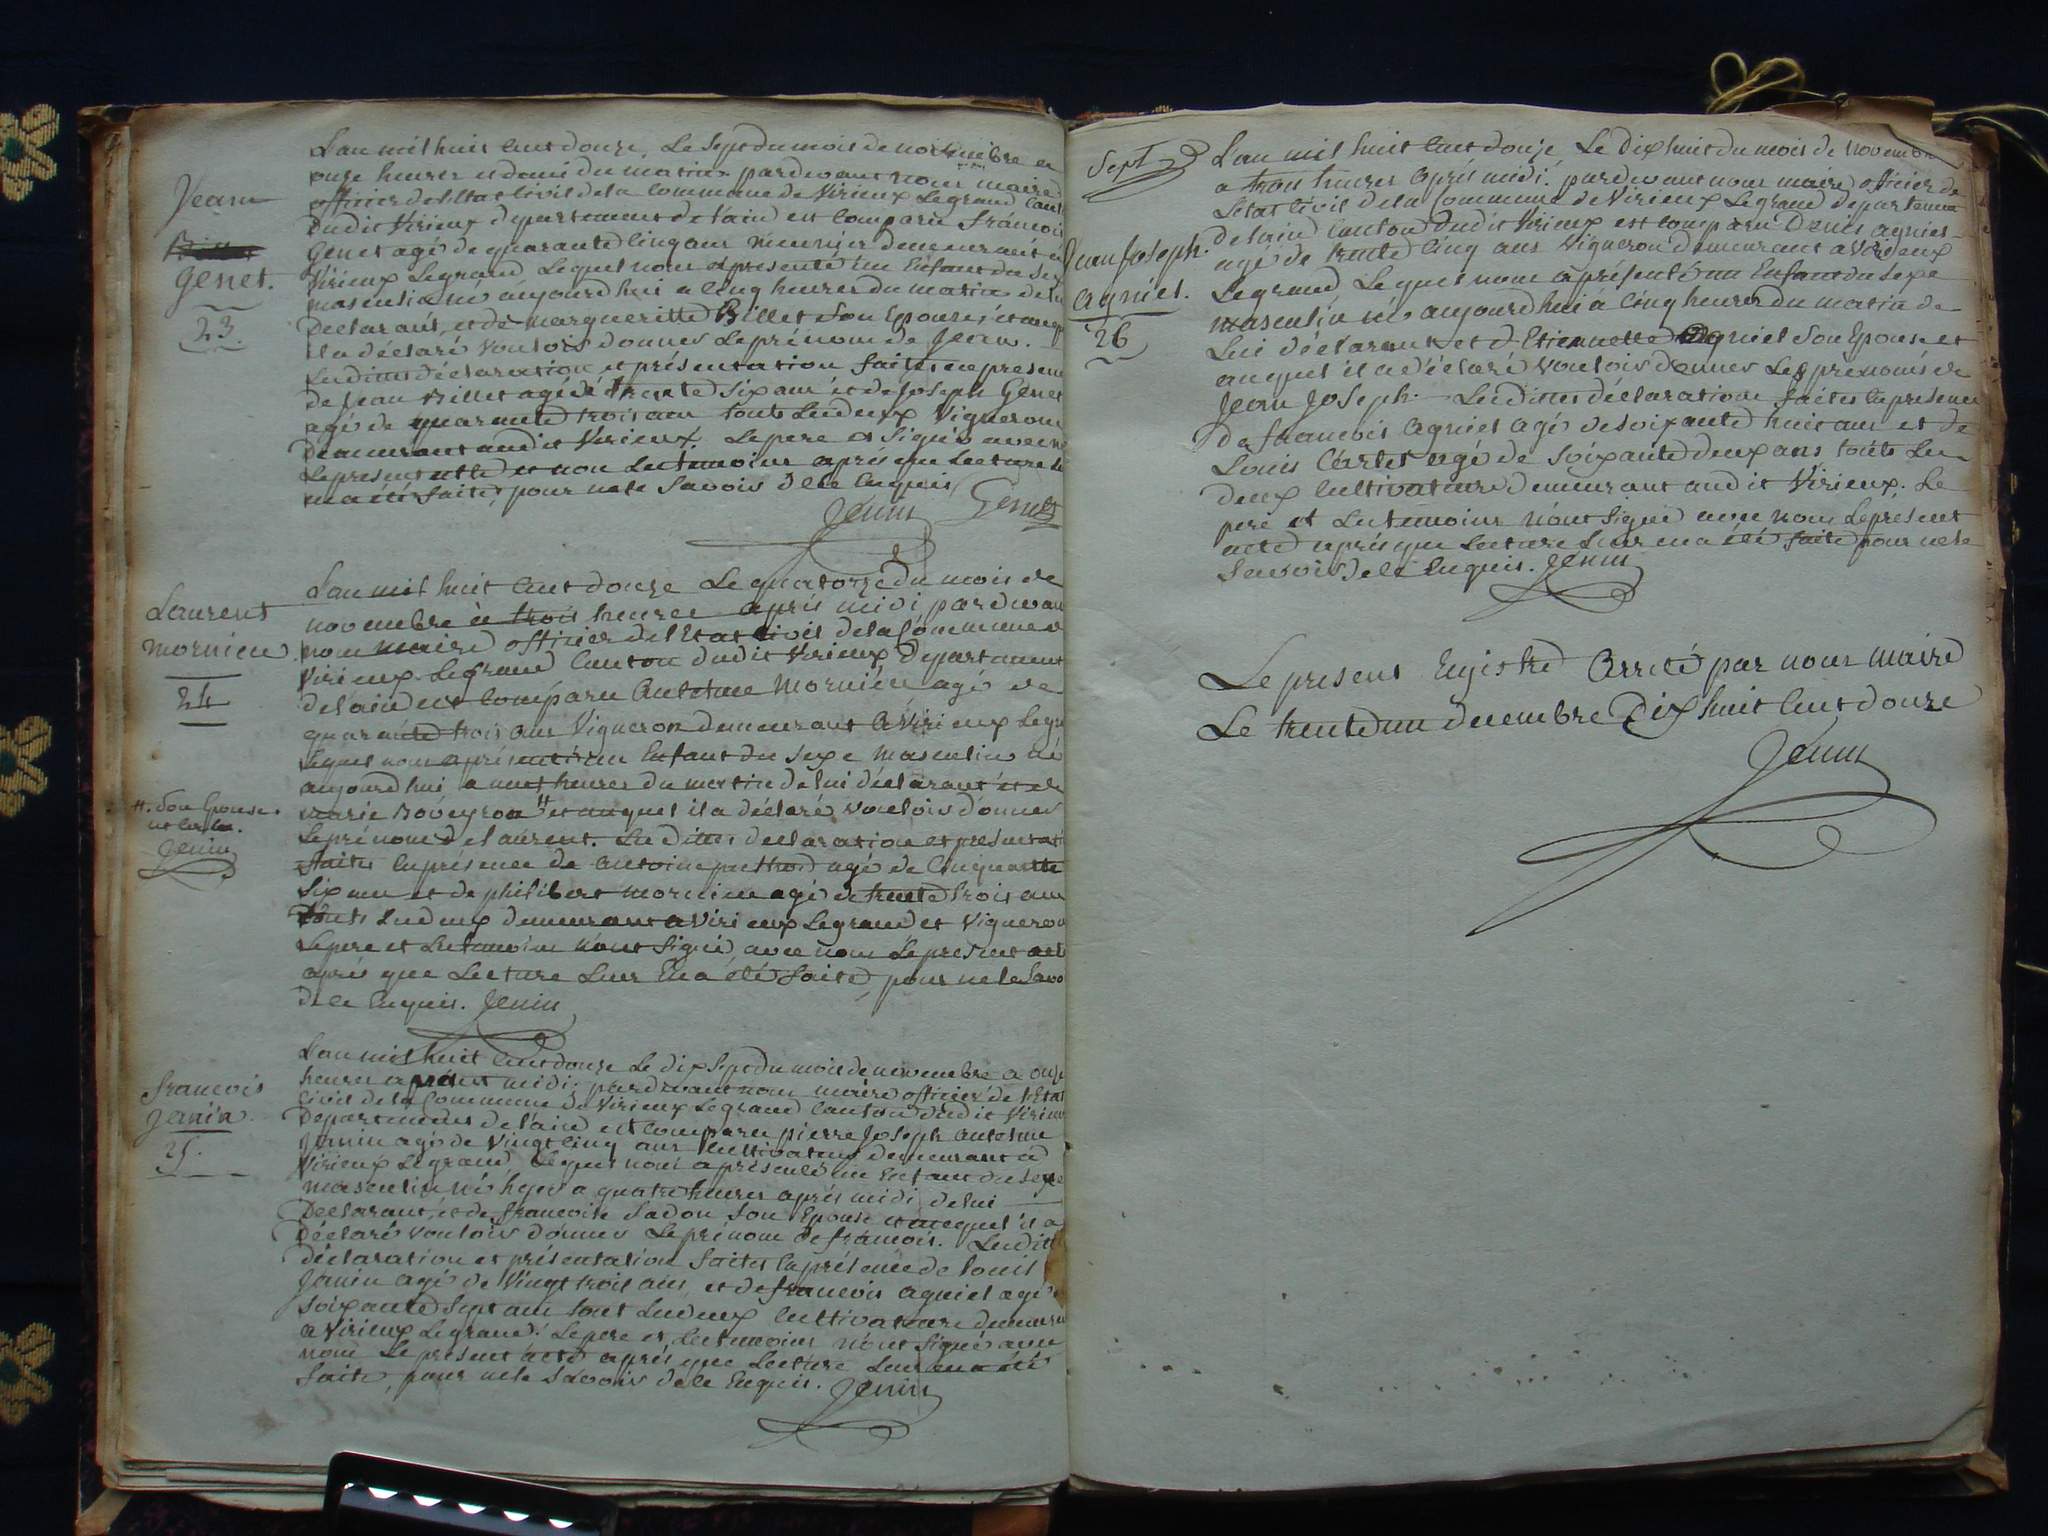 Jean
Genet.
23.
L'an mil huit cent douze, Le Sept du mois de novembre en
onze heures et demi du matin pardevant nous maire
officier de l'état Civil de la Commune de Virieux Legrand Cant
dudit Virieux département de l'ain est Comparu François
Genet agé de quarante Cinq ans meunier demeurant à
Virieux Legrand Lequel nous a présenté un Enfant du Sex
masculin né aujourd'hui a Cinq heures du matin de lui
Déclarant, et de margueritte Billet Son Epouse, et auq
il a déclaré vouloir donner Le prénom de Jean.
Lesdittes déclaration et présentation faites en presenc
de Jean Billet agé de trente Six ans et de Joseph Genet
agé de quarante trois ans touts Les deux Vignerons
demeurant audit Virieux. Le pere a Signé avec no
Le present acte et non Les temoins après que Lecture
m a été faite, pour ne le Savoir de ce Enquis
Jenin Genet
Laurent
mornieu
24
L'an mil huit Cent douze Le quatorze du mois de
novembre à trois heures après midi pardevan
nous maire officier de l'Etat Civil de la Commune d
Virieux Legrand Canton dudit Virieux Departement
de lain est Comparu Antelme Mornieu agé de
quarante trois ans Vigneron demeurant a Virieux Legr
Lequel nous a présenté un Enfant du Sexe Masculin né
aujourd'hui a neuf heures du matin de lui déclarant et de
marie Boveyron # et auquel il a déclaré vouloir donner
Le prénom de laurent. Les dittes declaration et présentati
#. Son Epouse.
Jenin
faites en présence de Antoine agé de Cinquante
Six ans et de philibert mornieu agé de trente trois ans
touts Les deux demeurant a Virieux Legrand et Vigneron
Le pere et Les temoins n'ont Signé avec nous Le present acte
après que Lecture Leur En a été faite, pour ne le Savo
de ce Enquis. Jenin
francois
Janin.
25.
L'an mil huit Cent douze Le dix Sept du mois de novembre a onze
heures midi; pardevant nous maire officier de l'Etat
Civil de la Commune de Virieux Legrand Canton dudit Virieux
Departement de l'ain est Comparu pierre Joseph Antelme
Janin agé de Vingt Cinq ans Cultivateur demeurant a
Virieux Legrand, Lequel nous a présenté un Enfant du Sexe
masculin né hyer a quatre heures après midi de lui
Déclarant, et de francoise Sadou Son Epouse et auquel il a
Déclaré vouloir donner Le prénom de françois. Lesditt
déclaration et présentation faites En présence de Louis
Janin agé de Vingt trois ans et de francois agniel agé d
Soixante Sept ans tout Les deux Cultivateurs demeuran
a Virieux Legrand. Le pere et Les temoins n'ont Signé avec
nous Le present acte après que Lecture Leur en a été
faite, pour ne le Savoir de ce Enquis. Jenin
Sept
Jean Joseph.
agniel.
26
L'an mil huit Cent douze Le Dix huit du mois de Novembre
a trois heures après midi. pardevant nous maire officier de
L'etat Civil de la Commune de Virieux Legrand departement
de l'ain Canton dudit Virieux est Comparu Denis agniel
agé de trente Cinq ans Vigneron demeurant a Virieux
Legrand Lequel nous a présenté un Enfant du Sexe
masculin né aujourdhui a Cinq heures du matin de
Lui déclarant et d'Etiennette agniel Son Epouse et
auquel il a déclaré vouloir donner Les prenoms de
Jean Joseph. Lesdittes déclaration faites En présence
de francois agniel agé de Soixante huit ans et de
Louis agé de Soixante deux ans touts Les
deux Cultivateurs demeurant audit Virieux. Le
pere et Les temoins n'ont Signé avec nous Le présent
acte après que Lecture Leur en a été faite pour ne le
Savoir de ce Enquis. Jenin
Le present Registre Arreté par nous Maire
Le trente un decembre Dix huit Cent douze
Jenin